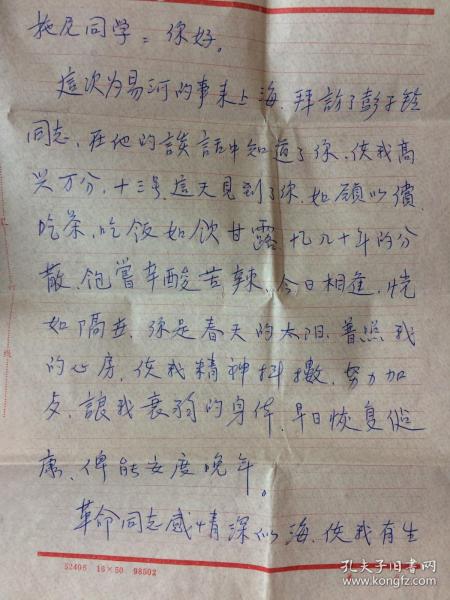 拖尼同学:你好。
這次为易河的事来上海,拜訪了彭于铨
同志,在他的談話中知道了你,使我高
兴万分,十三号這天見到了你,如願以償.
吃茶、吃饭如饮甘露 九十年的分
散,飽嘗辛酸苦辣,今日相逢,恍
如隔世,你是春天的太阳.普照我
的心房,使我精神抖擞,努力加
,讓我衰弱的身体,早日恢复健
康,俾能安度晚年。
革命同志感情深似海,使我有生
52406 16×50 98502
孔夫子旧书网
kongfz.com